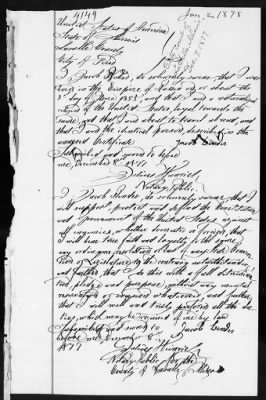 4149
Jan. 2 1878
United States of America
State of Illinois
County
City of
I, Jacob Binder, do solemnly swear, that I was
born in the of on or about the
day of June 1853, and that I am a naturalized
citizen of the United States, loyal towards the
same, and that I am about to travel abroad, and
that I am the identical person, described in the
annexed certificate Jacob Binder
Subscribed and sworn to before
me, December 8 1877
Julius
Notary Public.
I Jacob Binder, do solemnly swear, that I
will support, protect and defend the Constitution
and government of the United States against
all enemies, whether domestic or foreign, that
I will bear true faith and loyalty to the same,
any ordinance, resolution or law of any State, Convention
or Legislature to the contrary notwithstanding
and further, that I do this with a full determination,
pledge and purpose, without any mental
reservation or evasion whatsoever, and further,
that I will well and truly perform all the duties,
which may be required of me by law
Subscribed and sworn to Jacob Binder
before me, December 8
1877
Julius
Notary Public
County of